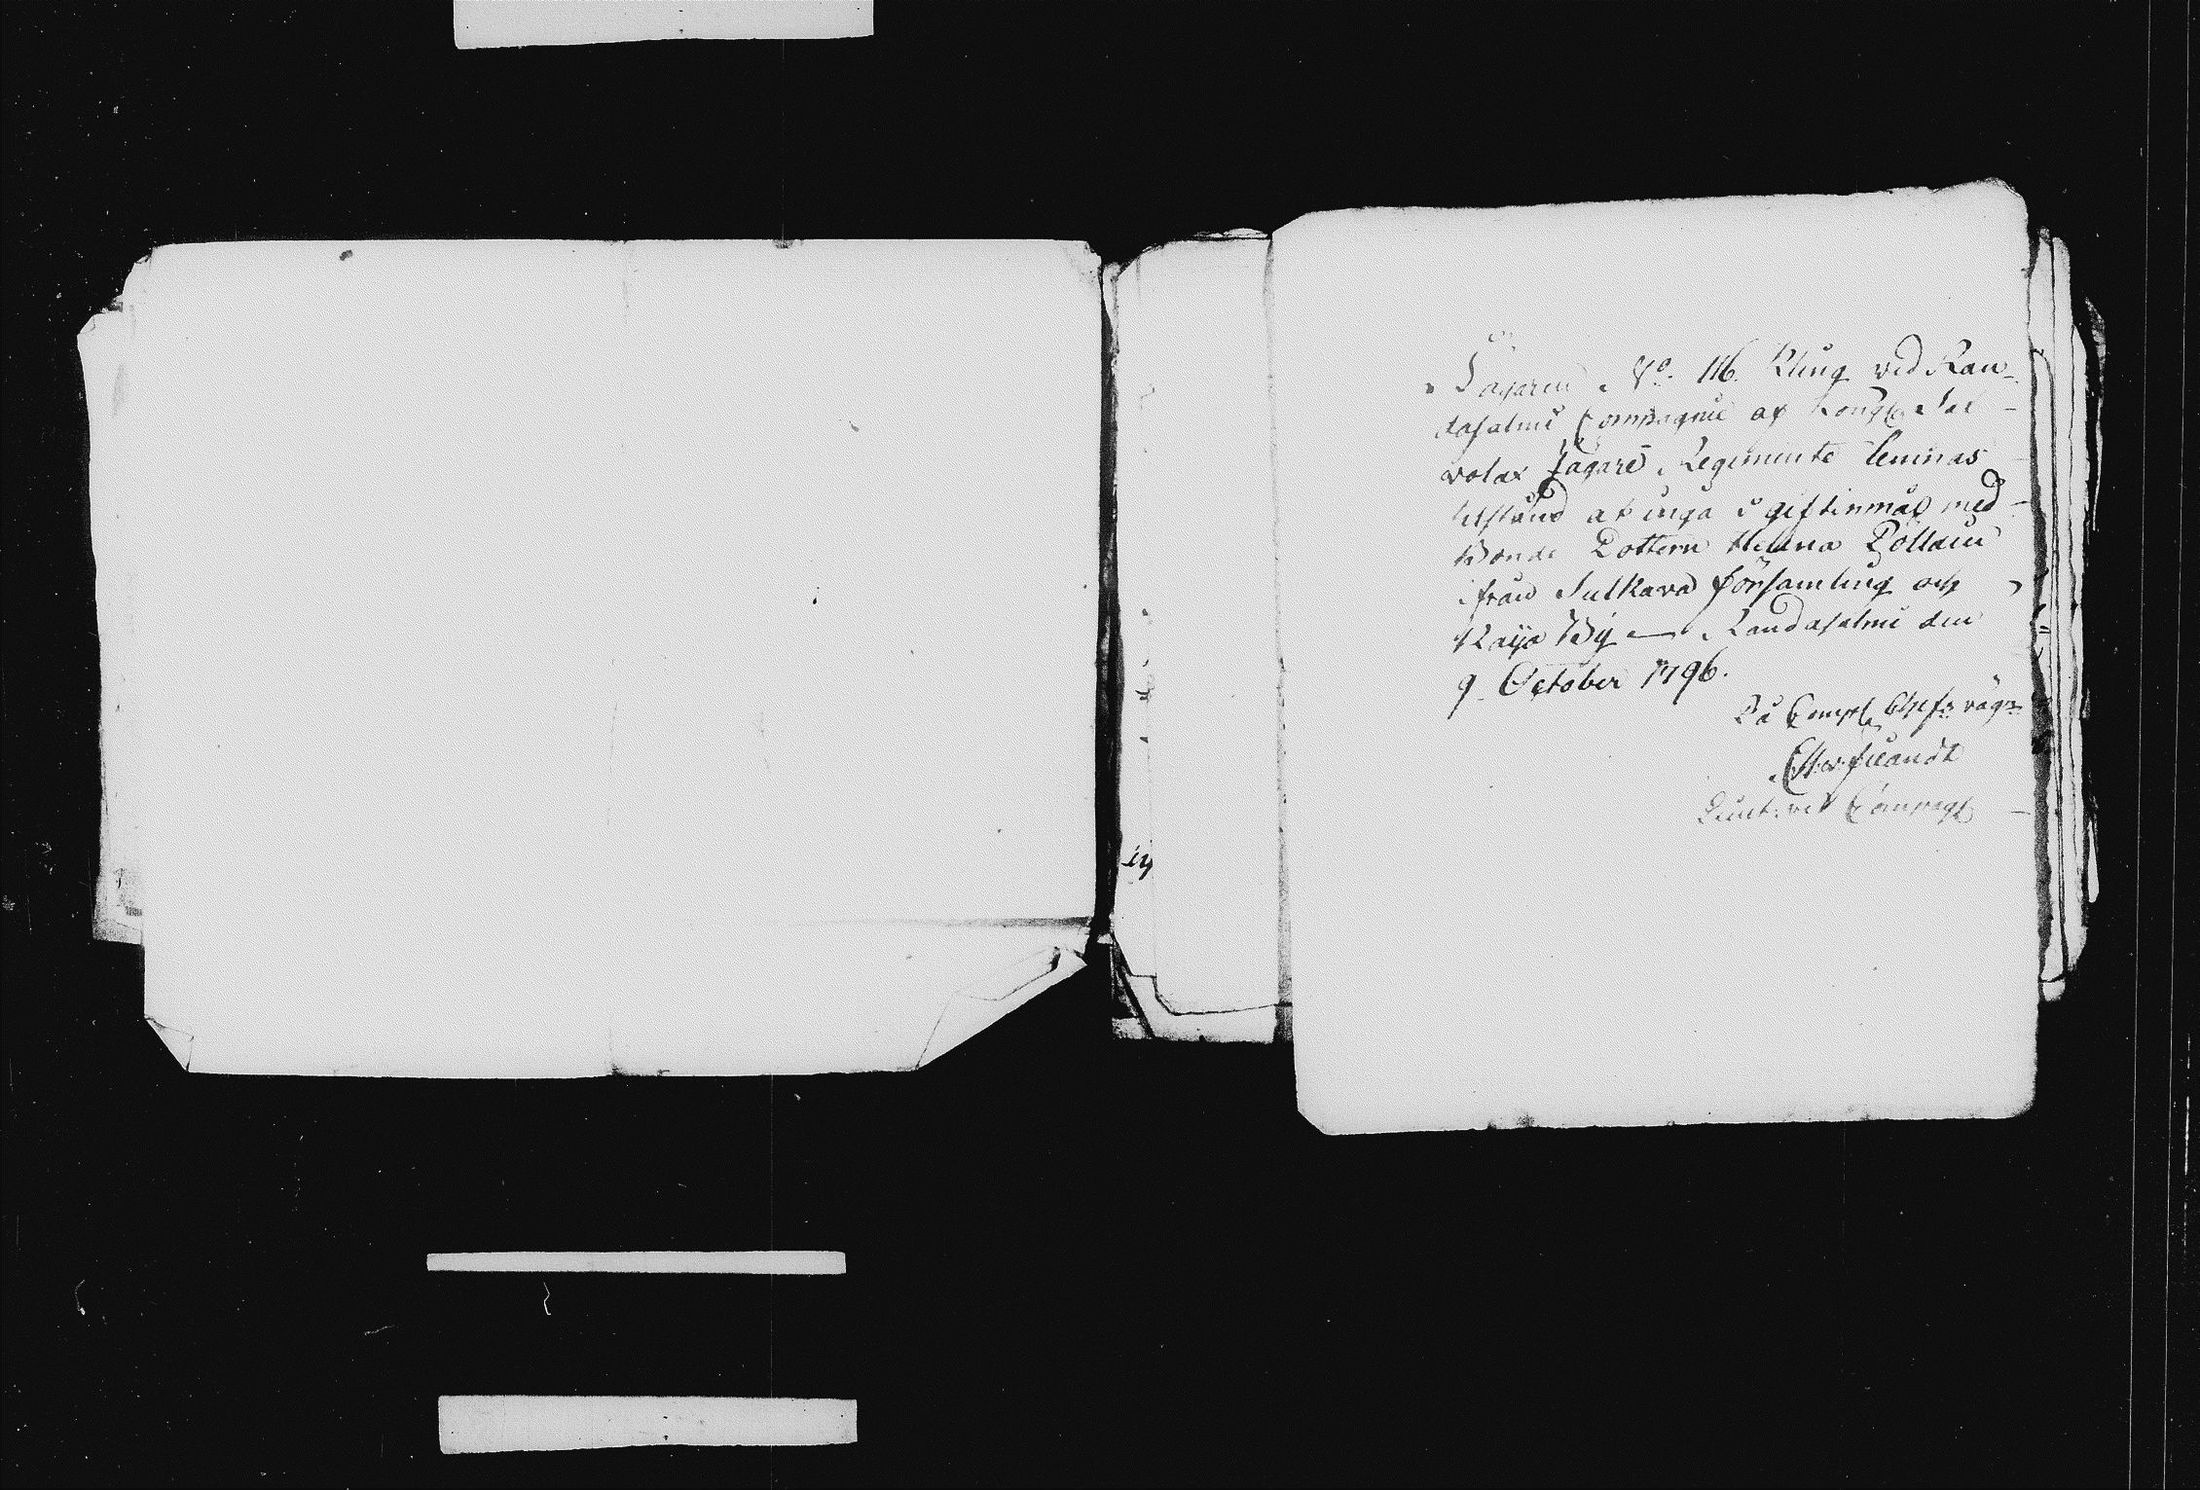 Jägaren No. 116. Kling vid Ran-
dasalmi Compagnie af Kongl. Sa-
volax Jägare Regimente lemnas
tilstånd at ingå i giftermål med
Bonde Dottern Helena Pöllain
ifrån Sulkava församling och
Kaija By — Randasalmi den
9 October 1796.
På Comp. Chefs vägn
vid Compag